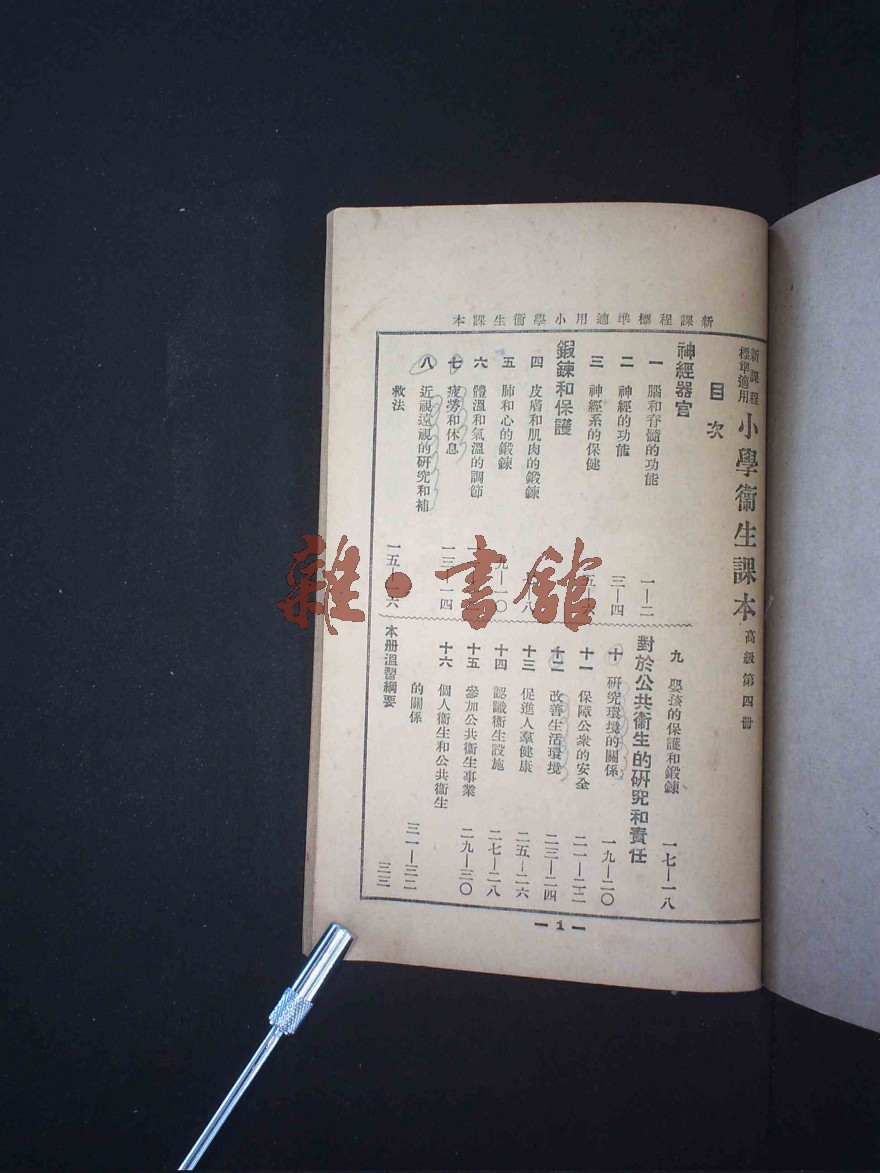 新課程標準適用小學衞生課本
新課程
標準適用
小學衞生課本 高級第四冊
目次
神經器官
一 腦和脊髓的功能 一—二
二 神經的功能 三—四
三 神經系的保健
鍛鍊和保護
四 皮膚和肌肉的鍛鍊
五 肺和心的鍛鍊
六 體溫和氣溫的調節
七 疲勞和休息 一三—一四
八 近視遠視的研究和補
救法 一五—一六
九 嬰孩的保護和鍛鍊 一七—一八
對於公共衞生的研究和責任
十 研究環境的關係 一九—二〇
十一 保障公衆的安全 二一—二二
十二 改善生活環境 二三—二四
十三 促進人羣健康 二五—二六
十四 認識衞生設施 二七—二八
十五 參加公共衞生事業 二九—三〇
十六 個人衞生和公共衞生
的關係 三一—三二
本册溫習綱要 三三
— 1 —
雜·書館